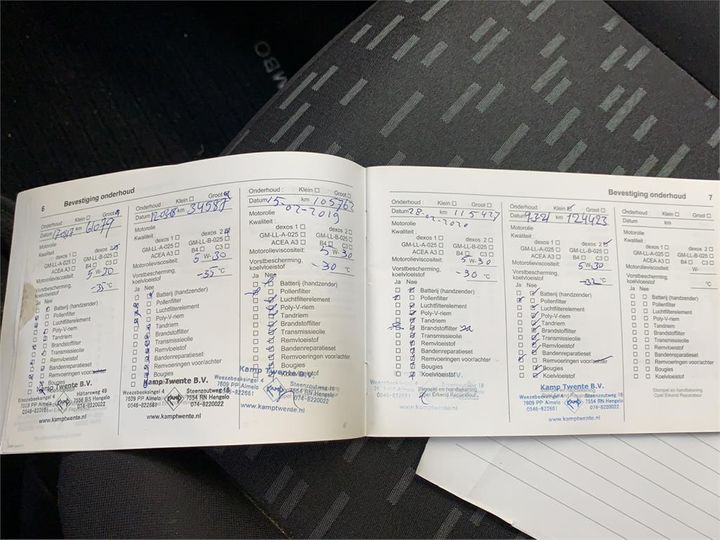 MBO
6
Bevestiging onderhoud
Onderhoud : Klein Groot
Datum km
Motorolie
Kwaliteit:
dexos 1 dexos 2
GM-LL-A-025 GM-LL-B-025
ACEA A3 B4 C3
Motorolieviscositeit:
5 W-30
Vorstbescherming,
koelvloeistof
-35 °C
Ja Nee
Batterij (handzender)
Pollenfilter
Luchtfilterelement
Poly-V-riem
Tandriem
Brandstoffilter
Transmissieolie
Remvloeistof
Bandenreparatieset
Remvoeringen voor/achter
Bougies
Koelvloeistof
Onderhoud : Klein Groot
Datum km 34587
Motorolie
Kwaliteit :
dexos 1 dexos 2
GM-LL-A-025 GM-LL-B-025
ACEA A3 B4 C3
Motorolieviscositeit:
5 W-30
Vorstbescherming,
koelvloeistof
-35 °C
Ja Nee
Batterij (handzender)
Pollenfilter
Luchtfilterelement
Poly-V-riem
Tandriem
Brandstoffilter
Transmissieolie
Remvloeistof
Bandenreparatieset
Remvoeringen voor/achter
Bougies
Kamp Twente B.V.
Weezebeeksingel 4
7609 PP Almelo
0546-822681
Steenzoutweg 19
7554 RN Hengelo
074-8220022
www.kamptwente.nl
Onderhoud : Klein Groot
Datum 15-02-2019 km 105762
Motorolie
Kwaliteit :
dexos 1 dexos 2
GM-LL-A-025 GM-LL-B-025
ACEA A3 B4 C3
Motorolieviscositeit:
5 W-30
Vorstbescherming,
koelvloeistof
-30 °C
Ja Nee
Batterij (handzender)
Pollenfilter
Luchtfilterelement
Poly-V-riem
Tandriem
Brandstoffilter
Transmissieolie
Remvloeistof
Bandenreparatieset
Remvoeringen voor/achter
Bougies
Kamp Twente B.V.
www.kamptwente.nl
Bevestiging onderhoud
7
Onderhoud : Klein Groot
Datum 28-02-2020 km 115427
Motorolie
Kwaliteit :
dexos 1 dexos 2
GM-LL-A-025 GM-LL-B-025
ACEA A3 B4 C3
Motorolieviscositeit:
5 W-30
Vorstbescherming,
koelvloeistof
-30 °C
Ja Nee
Batterij (handzender)
Pollenfilter
Luchtfilterelement
Poly-V-riem
Tandriem
Brandstoffilter
Transmissieolie
Remvloeistof
Bandenreparatieset
Remvoeringen voor/achter
Bougies
Koelvloeistof
Onderhoud : Klein Groot
Datum km 124423
Motorolie
Kwaliteit :
dexos 1 dexos 2
GM-LL-A-025 GM-LL-B-025
ACEA A3 B4 C3
Motorolieviscositeit:
5 W-30
Vorstbescherming,
koelvloeistof
-32 °C
Ja Nee
Batterij (handzender)
Pollenfilter
Luchtfilterelement
Poly-V-riem
Tandriem
Brandstoffilter
Transmissieolie
Remvloeistof
Bandenreparatieset
Remvoeringen voor/achter
Bougies
Koelvloeistof
Kamp Twente B.V.
Weezebeeksingel 4
7609 PP Almelo
0546-822681
Steenzoutweg 19
7554 RN Hengelo
074-8220022
www.kamptwente.nl
Onderhoud : Klein Groot
Datum km
Motorolie
Kwaliteit :
dexos 1 dexos 2
GM-LL-A-025 GM-LL-B-025
ACEA A3 B4 C3
Motorolieviscositeit:
W-
Vorstbescherming,
koelvloeistof
°C
Ja Nee
Batterij (handzender)
Pollenfilter
Luchtfilterelement
Poly-V-riem
Tandriem
Brandstoffilter
Transmissieolie
Remvloeistof
Bandenreparatieset
Remvoeringen voor/achter
Bougies
Koelvloeistof
Stempel en handtekening
Opel Erkend Reparateur